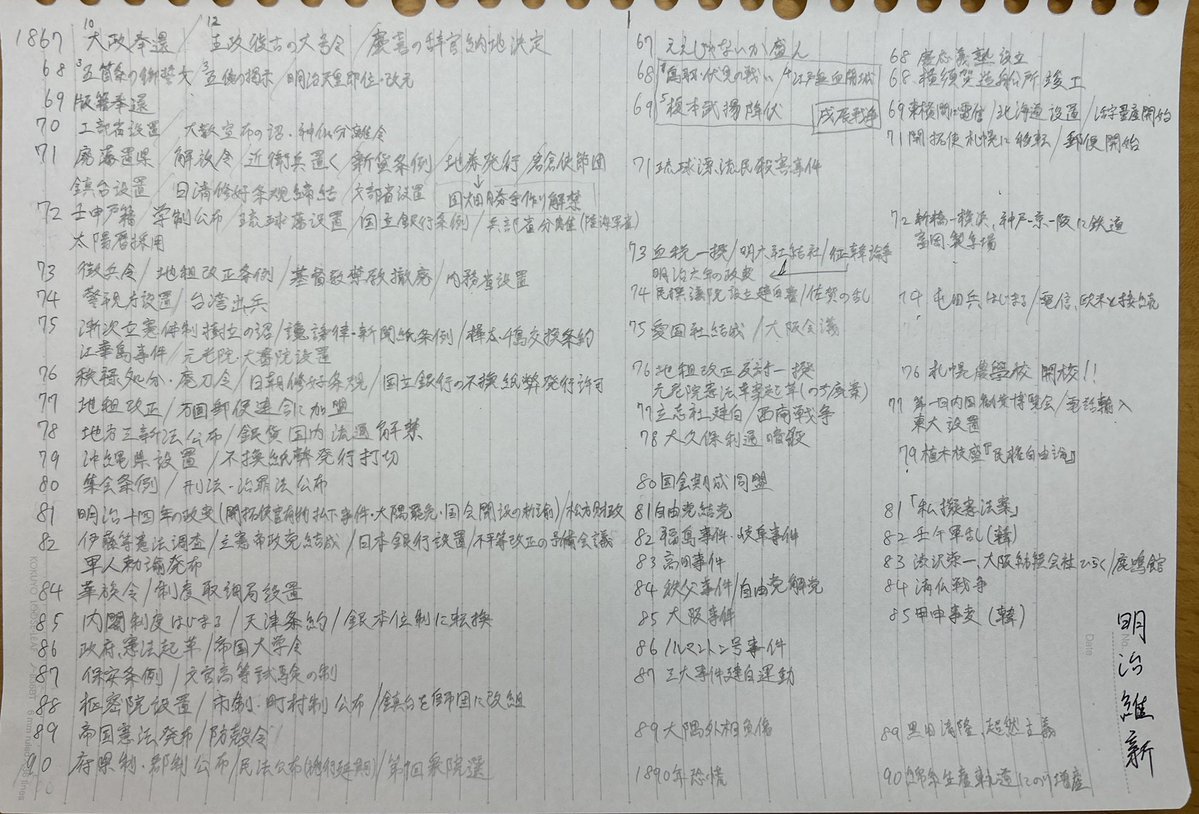 10 12
1867 大政奉還 / 王政復古の大号令 / 慶喜の辞官納地決定
68 3五箇条の御誓文 / 3五傍の掲示 / 明治天皇即位・改元
69 版籍奉還
70 工部省設置 / 大教宣布の詔・神仏分離令
71 廃藩置県 / 解放令 / 近衛兵置く / 新貨条例 / 地券発行 / 岩倉使節団
鎮台設置 / 日清修好条規締結 / 文部省設置 田畑勝手作り解禁
72 壬申戸籍 / 学制公布 / 琉球藩設置 / 国立銀行条例 / 兵部省分離(陸海軍省)
太陽暦採用
73 徴兵令 / 地租改正条例 / 基督教禁教撤廃 / 内務省設置
74 警視庁設置 / 台湾出兵
75 漸次立憲体制樹立の詔 / 讒謗律・新聞紙条例 / 樺太・千島交換条約
江華島事件 / 元老院・大審院設置
76 秩禄処分・廃刀令 / 日朝修好条規 / 国立銀行の不換紙幣発行許可
77 地租改正 / 万国郵便連合に加盟
78 地方三新法公布 / 銀貨国内流通解禁
79 沖縄県設置 / 不換紙幣発行打切
80 集会条例 / 刑法・治罪法公布
81 明治十四年の政変(開拓使官有物払下事件・大隈罷免・国会開設の勅諭) / 松方財政
82 伊藤等憲法調査 / 立憲帝政党結成 / 日本銀行設置 / 不平等改正の予備会議
軍人勅諭発布
84 華族令 / 制度取調局設置
85 内閣制度はじまる / 天津条約 / 銀本位制に転換
86 政府、憲法起草 / 帝国大学令
87 保安条例 / 文官高等試験の制
88 枢密院設置 / 市制・町村制公布 / 鎮台を師団に改組
89 帝国憲法発布 / 防穀令
90 府県制・郡制公布 / 民法公布(施行延期) / 第1回衆院選
67 ええじゃないか盛ん
68 1鳥取・伏見の戦い / 4江戸無血開城
69 5榎本武揚降伏 戊辰戦争
71 琉球漂流民殺害事件
73 血税一揆 / 明六社結社 / 征韓論争
明治六年の政変
74 民撰議院設立建白書 / 佐賀の乱
75 愛国社結成 / 大阪会議
76 地租改正反対一揆
元老院憲法草案起草(のち廃案)
77 立志社建白 / 西南戦争
78 大久保利通暗殺
80 国会期成同盟
81 自由党結党
82 福島事件・岐阜事件
83 高田事件
84 秩父事件 / 自由党解党
85 大阪事件
86 ノルマントン号事件
87 三大事件建白運動
89 大隈外相負傷
1890年恐慌
68 慶応義塾設立
68 横須賀造船所竣工
69 東横間に電信 / 北海道設置 / 活字量産開始
71 開拓使札幌に移転 / 郵便開始
72 新橋-横浜、神戸-京-阪に鉄道
富岡製糸場
74 屯田兵はじまる / 電信、欧米と接続
76 札幌農學校 開校!!
77 第一回内国勧業博覧会 / 電話輸入
東大設置
79 植木枝盛『民権自由論』
81 「私擬憲法案」
82 壬午軍乱(韓)
83 渋沢栄一、大阪紡績会社ひらく / 鹿鳴館
84 清仏戦争
85 甲申事変(韓)
89 黒田清隆、超然主義
90 綿糸生産軌道にのり増産
明治維新
No.
Date